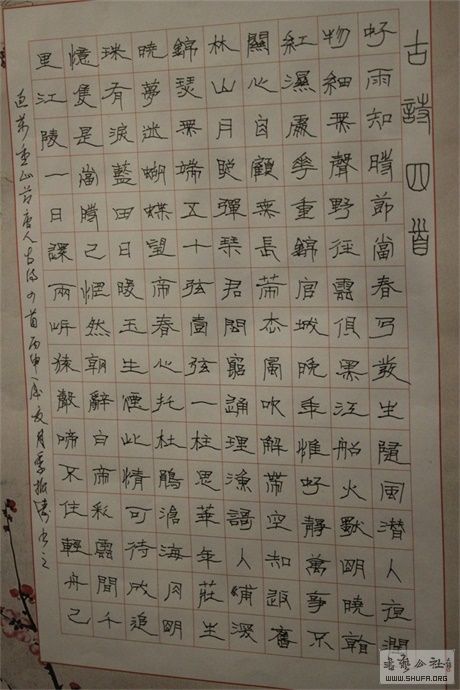 古詩四首
好雨知時節當春乃發生隨風潛入夜潤
物細無聲野徑雲俱黑江船火獨明曉看
紅濕處花重錦官城晚年惟好靜萬事不
關心自顧無長策松風吹解帶空知返舊
林山月照彈琴君問窮通理漁歌入浦深
錦瑟無端五十弦壹弦一柱思華年莊生
曉夢迷蝴蝶望帝春心托杜鵑滄海月明
珠有淚藍田日暖玉生煙此情可待成追
憶隻是當時已惘然朝辭白帝彩雲間千
里江陵一日還兩岸猿聲啼不住輕舟已
過萬重山唐人古詩四首丙申
書藝公社
WWW.SHUFA.ORG